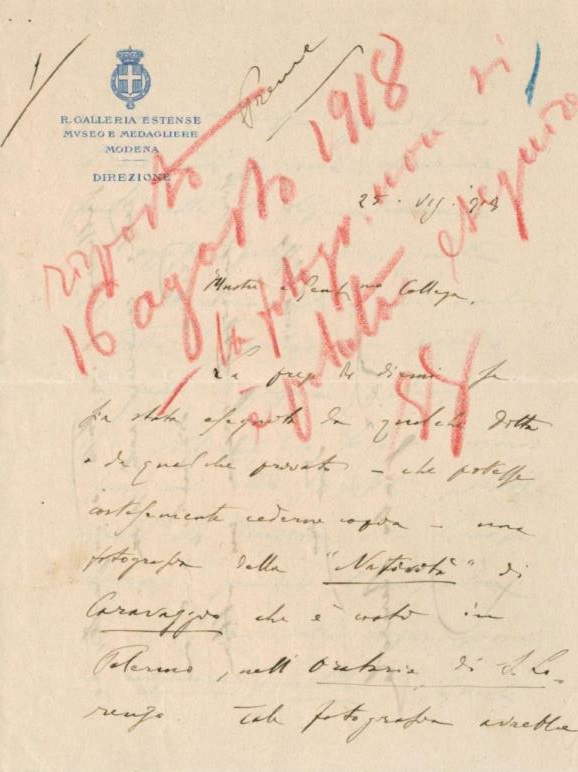 1
Preme
R. GALLERIA ESTENSE
MVSEO E MEDAGLIERE
MODENA
DIREZIONE
risposto
16 agosto 1918
la fotogr. non si
è potuta eseguire
25 - 1918
Illustre e Collega,
La prego di dirmi se
sia stata eseguita da qualche ditta
o da qualche privato - che potesse
cortesemente cederne copia - una
fotografia della "Natività" di
Caravaggio che è costì in
Palermo, nell'Oratorio di S. Lo-
renzo Tale fotografia avrebbe